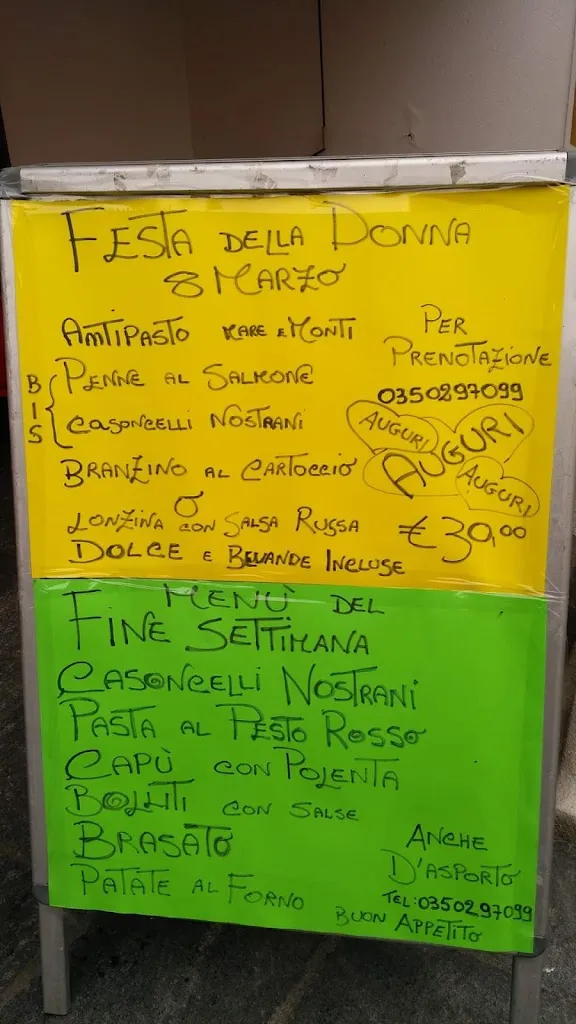 FESTA DELLA DONNA
8 MARZO
ANTIPASTO MARE E MONTI
BIS { PENNE AL SALMONE
CASONCELLI NOSTRANI
BRANZINO AL CARTOCCIO
O
LONZINA CON SALSA RUSSA
DOLCE E BEVANDE INCLUSE
PER
PRENOTAZIONE
0350297099
AUGURI
AUGURI
AUGURI
€30,00
MENÙ DEL
FINE SETTIMANA
CASONCELLI NOSTRANI
PASTA AL PESTO ROSSO
CAPÙ CON POLENTA
BOLLITI CON SALSE
BRASATO
PATATE AL FORNO
ANCHE
D'ASPORTO
TEL:0350297099
BUON APPETITO